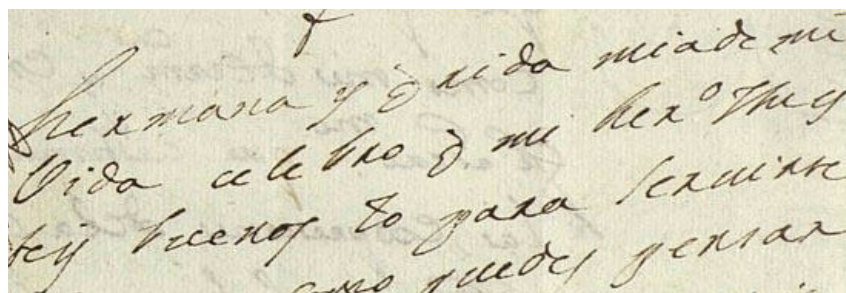 hermana y q̃rida mia de mi
Vida celebro q̃ mi her.º y tu es
teis buenos yo para seruirte
como puedes pensar